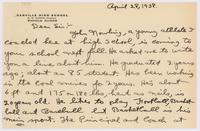 DANVILLE HIGH SCHOOL
April 28, 1938.
Dear Sir:
John Nowling, a young athlete I
coached here at high school, is coming to
your school next fall. He asked me to write
you a line about him. He graduated 2 years
ago; about a 85 student. He has been working
in the coal mines for 2 years. He's about
6 ft and 175 or 180 lbs hard as nails, is
20 years old. He likes to play Football, Basket
ball and Baseball. Basketball is his
sport. The Principal and Coach at